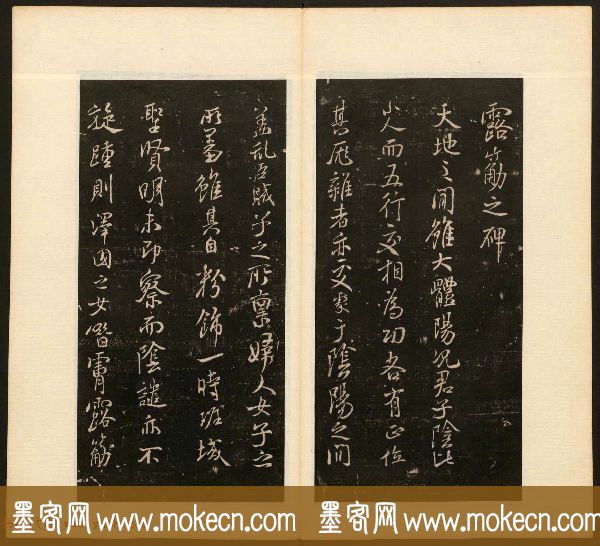 露筋之碑
天地之間雖大體陽況君子陰比
小人而五行交相為功各有正位
其厖雜者亦交
于陰陽之間
蓋亂臣賊子之所稟婦人女子之
所羞雖其自粉飾一時
聖賢明未即察而陰譴亦不
旋踵則澤國之女
露筋
墨客网 www.mokecn.com 墨客网 www.mokecn.com